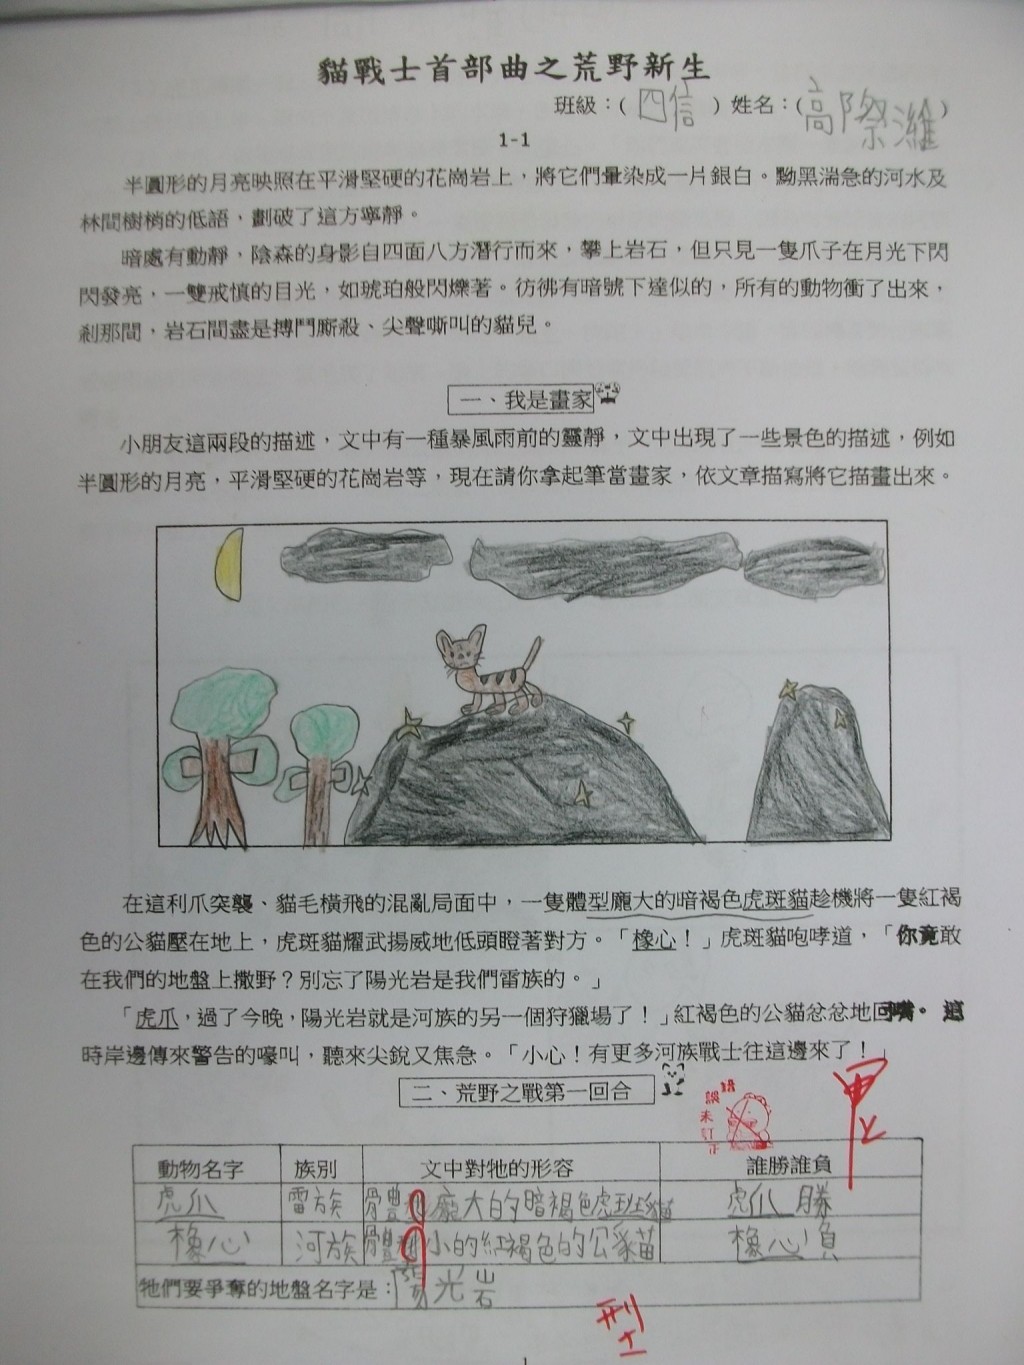 貓戰士首部曲之荒野新生
班級:( 四信 ) 姓名:(高際濰)
1-1
半圓形的月亮映照在平滑堅硬的花崗岩上,將它們暈染成一片銀白。黝黑湍急的河水及
林間樹梢的低語,劃破了這方寧靜。
暗處有動靜,陰森的身影自四面八方潛行而來,攀上岩石,但只見一隻爪子在月光下閃
閃發亮,一雙戒慎的目光,如琥珀般閃爍著。彷彿有暗號下達似的,所有的動物衝了出來,
剎那間,岩石間盡是搏鬥廝殺、尖聲嘶叫的貓兒。
一、我是畫家
小朋友這兩段的描述,文中有一種暴風雨前的靈靜,文中出現了一些景色的描述,例如
半圓形的月亮,平滑堅硬的花崗岩等,現在請你拿起筆當畫家,依文章描寫將它描畫出來。
在這利爪突襲、貓毛橫飛的混亂局面中,一隻體型龐大的暗褐色虎斑貓趁機將一隻紅褐
色的公貓壓在地上,虎斑貓耀武揚威地低頭瞪著對方。「橡心!」虎斑貓咆哮道,「你竟敢
在我們的地盤上撒野?別忘了陽光岩是我們雷族的。」
「虎爪,過了今晚,陽光岩就是河族的另一個狩獵場了!」紅褐色的公貓忿忿地回嘴。這
時岸邊傳來警告的嚎叫,聽來尖銳又焦急。「小心!有更多河族戰士往這邊來了!」
二、荒野之戰第一回合
錯誤未訂正
動物名字 族別 文中對牠的形容 誰勝誰負
虎爪 雷族 體型龐大的暗褐色虎斑貓 虎爪勝
橡心 河族 體型小的紅褐色的公貓 橡心負
牠們要爭奪的地盤名字是:陽光岩
型
1